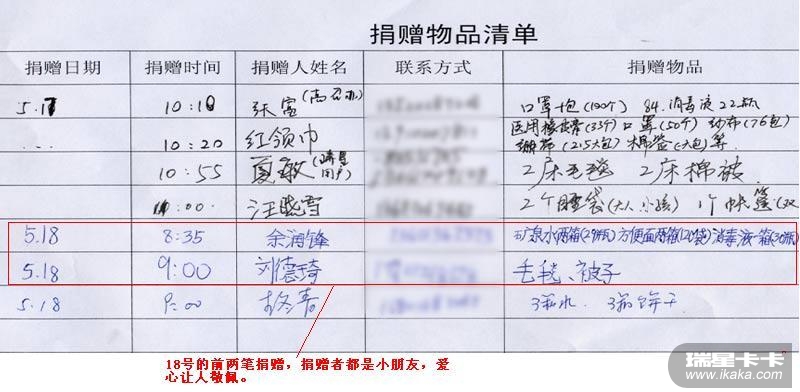 捐赠物品清单
捐赠日期 捐赠时间 捐赠人姓名 联系方式 捐赠物品
5.17 10:10 张富(高召办) 口罩1包(100个) 84.消毒液22瓶
... 10:20 红领巾 医用橡皮膏(33个)口罩(50个)纱布(76包)
绷带(2.5大包)棉签(大包)等.
10:55 夏敏(瑞星用户) 2床毛毯 2床棉被
11:00 汪晓雪 2个睡袋(大人小孩) 1个帐篷(双
5.18 8:35 余润锋 矿泉水两箱(24瓶)方便面两箱(24袋)消毒液一箱(30瓶)
5.18 9:00 刘德琦 毛毯、被子
5.18 9:00 3箱水. 3箱饼干
18号的前两笔捐赠，捐赠者都是小朋友，爱
心让人敬佩。
瑞星卡卡
www.ikaka.com